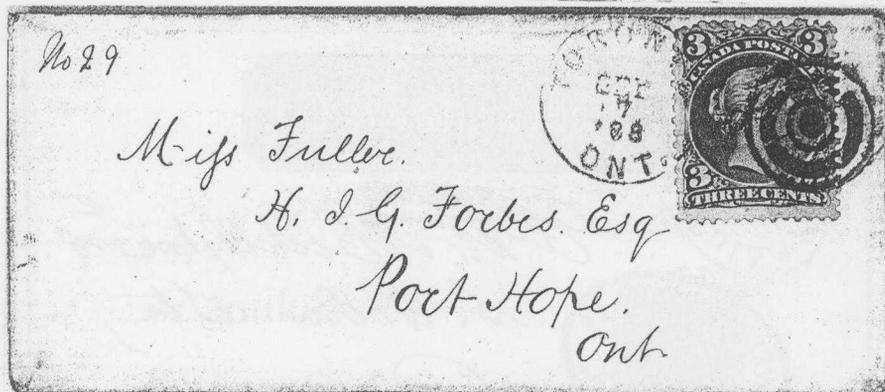 No 29
TORON
7
68
ONT.
3 3
CANADA POST
3
THREE CENTS
Miss Fuller.
H. J. G. Forbes. Esq
Port Hope.
Ont